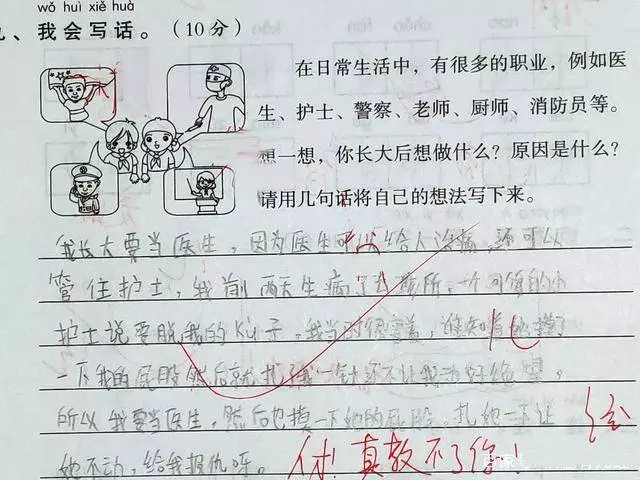 wǒ huì xiě huà
、我会写话。(10分)
在日常生活中,有很多的职业,例如医
生、护士、警察、老师、厨师、消防员等。
想一想,你长大后想做什么?原因是什么?
请用几句话将自己的想法写下来。
我长大要当医生,因为医生可以给人治病,还可以
管住护士,我前两天生病了去诊所,一个可恶的小
护士说要脱我的Kù子,我当时很害羞,谁知道她摸了
一下我的屁股然后就扎了我一针还不让我动好绝望,
所以我要当医生,然后也摸一下她的屁股,扎她一下让
她不动,给我报仇呀。
真教不了你!